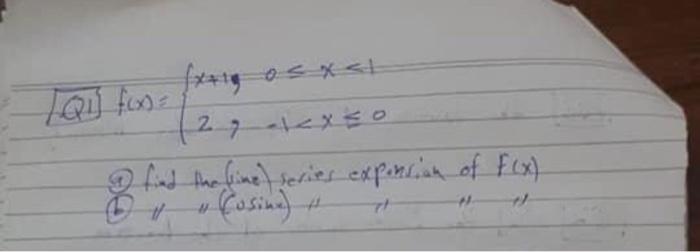 x+1, 0 ≤ x < 1
Q1 f(x) = {
2, -1 < x ≤ 0
ⓐ find the (sine) series expansion of F(x)
ⓑ " " (Cosine) " " " "